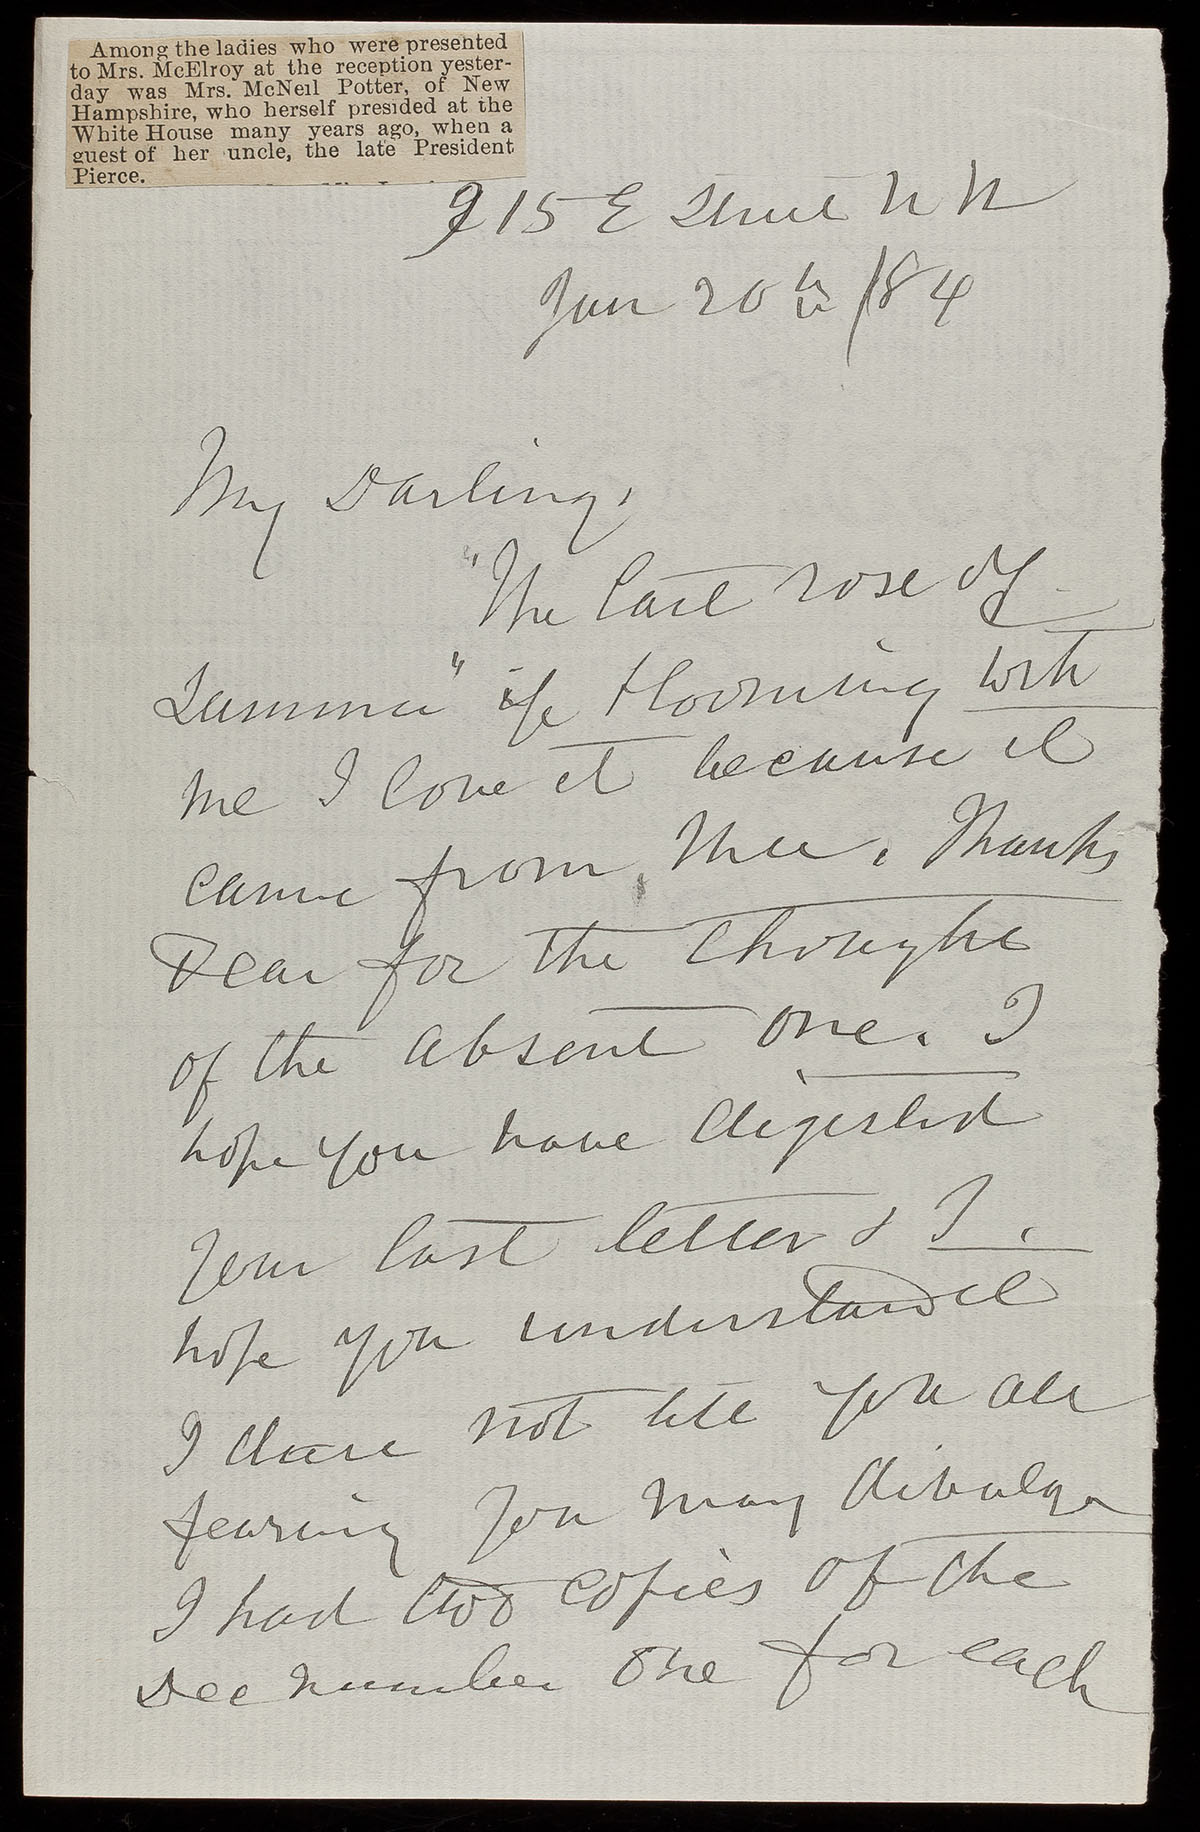 Among the ladies who were presented
to Mrs. McElroy at the reception yester-
day was Mrs. McNeil Potter, of New
Hampshire, who herself presided at the
White House many years ago, when a
guest of her uncle, the late President
Pierce.
915 E Street N W
Jan 20th /84
My Darling,
"The last rose of
Summer" is blooming with
me I love it because it
came from thee. Thanks
Dear for the thought
of the absent one. I
hope you have digested
your last letter & I
hope you understand it
I dare not tell you all
fearing you may divulge
I had two copies of the
Dec number one for each